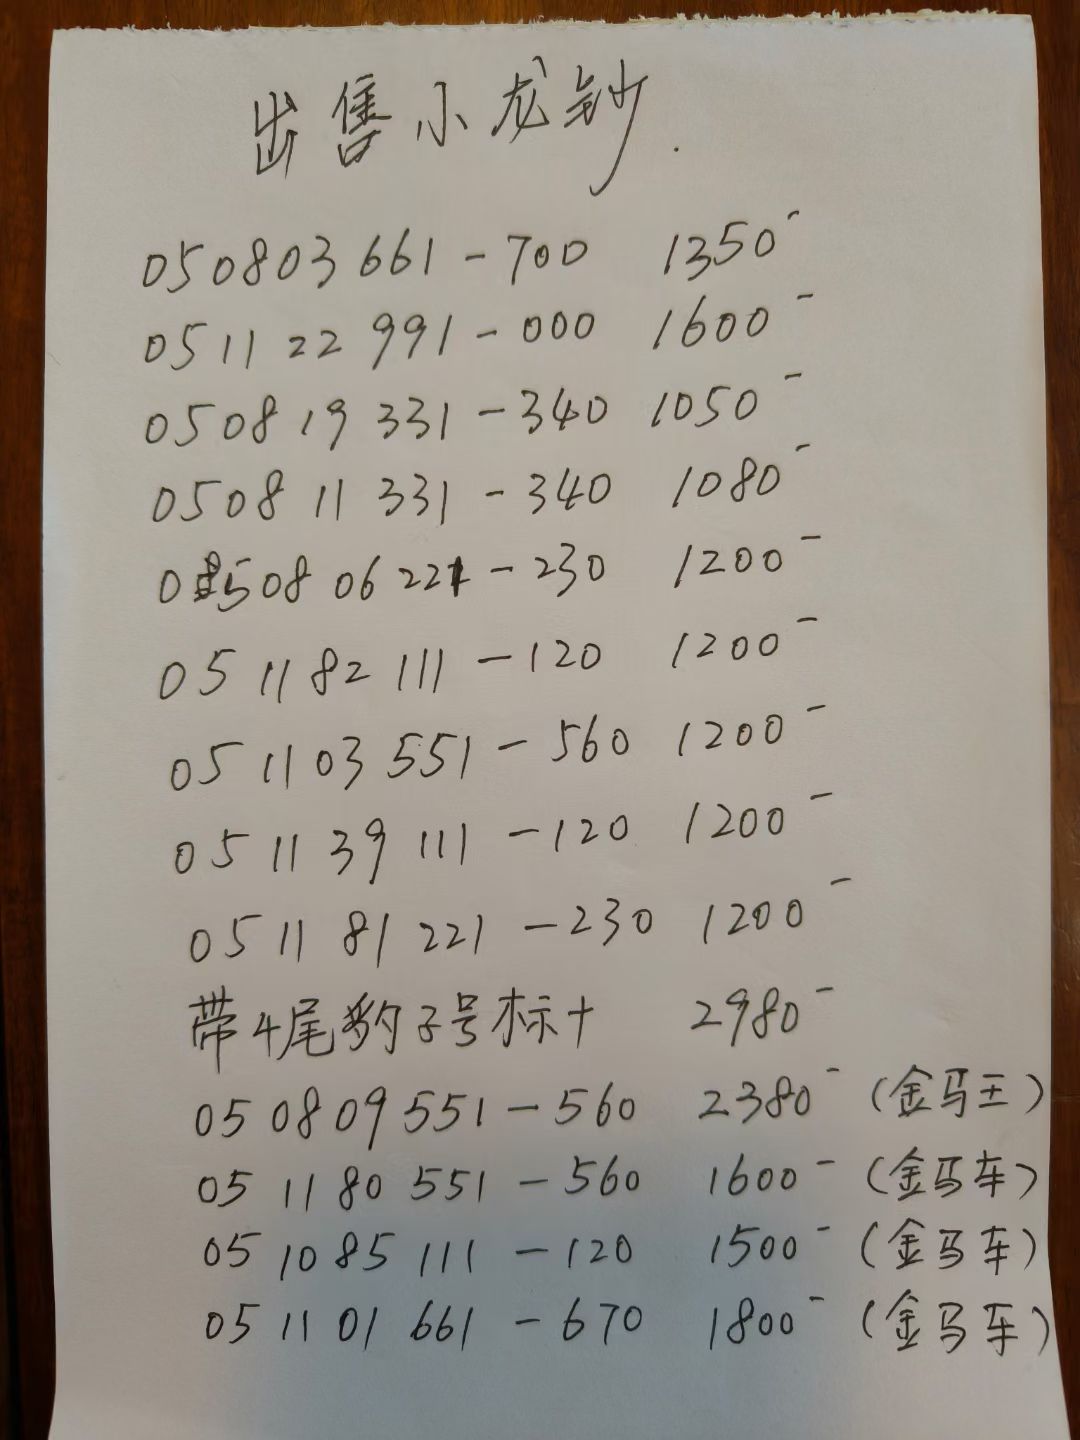 出售小龙钞.
050803 661-700 1350-
051122 991-000 1600-
050819 331-340 1050-
050811 331-340 1080-
050806 221-230 1200-
051182 111-120 1200-
051103 551-560 1200-
051139 111-120 1200-
051181 221-230 1200-
带4尾豹子号标十 2980-
050809 551-560 2380- (金马王)
051180 551-560 1600- (金马车)
051085 111-120 1500- (金马车)
051101 661-670 1800- (金马车)